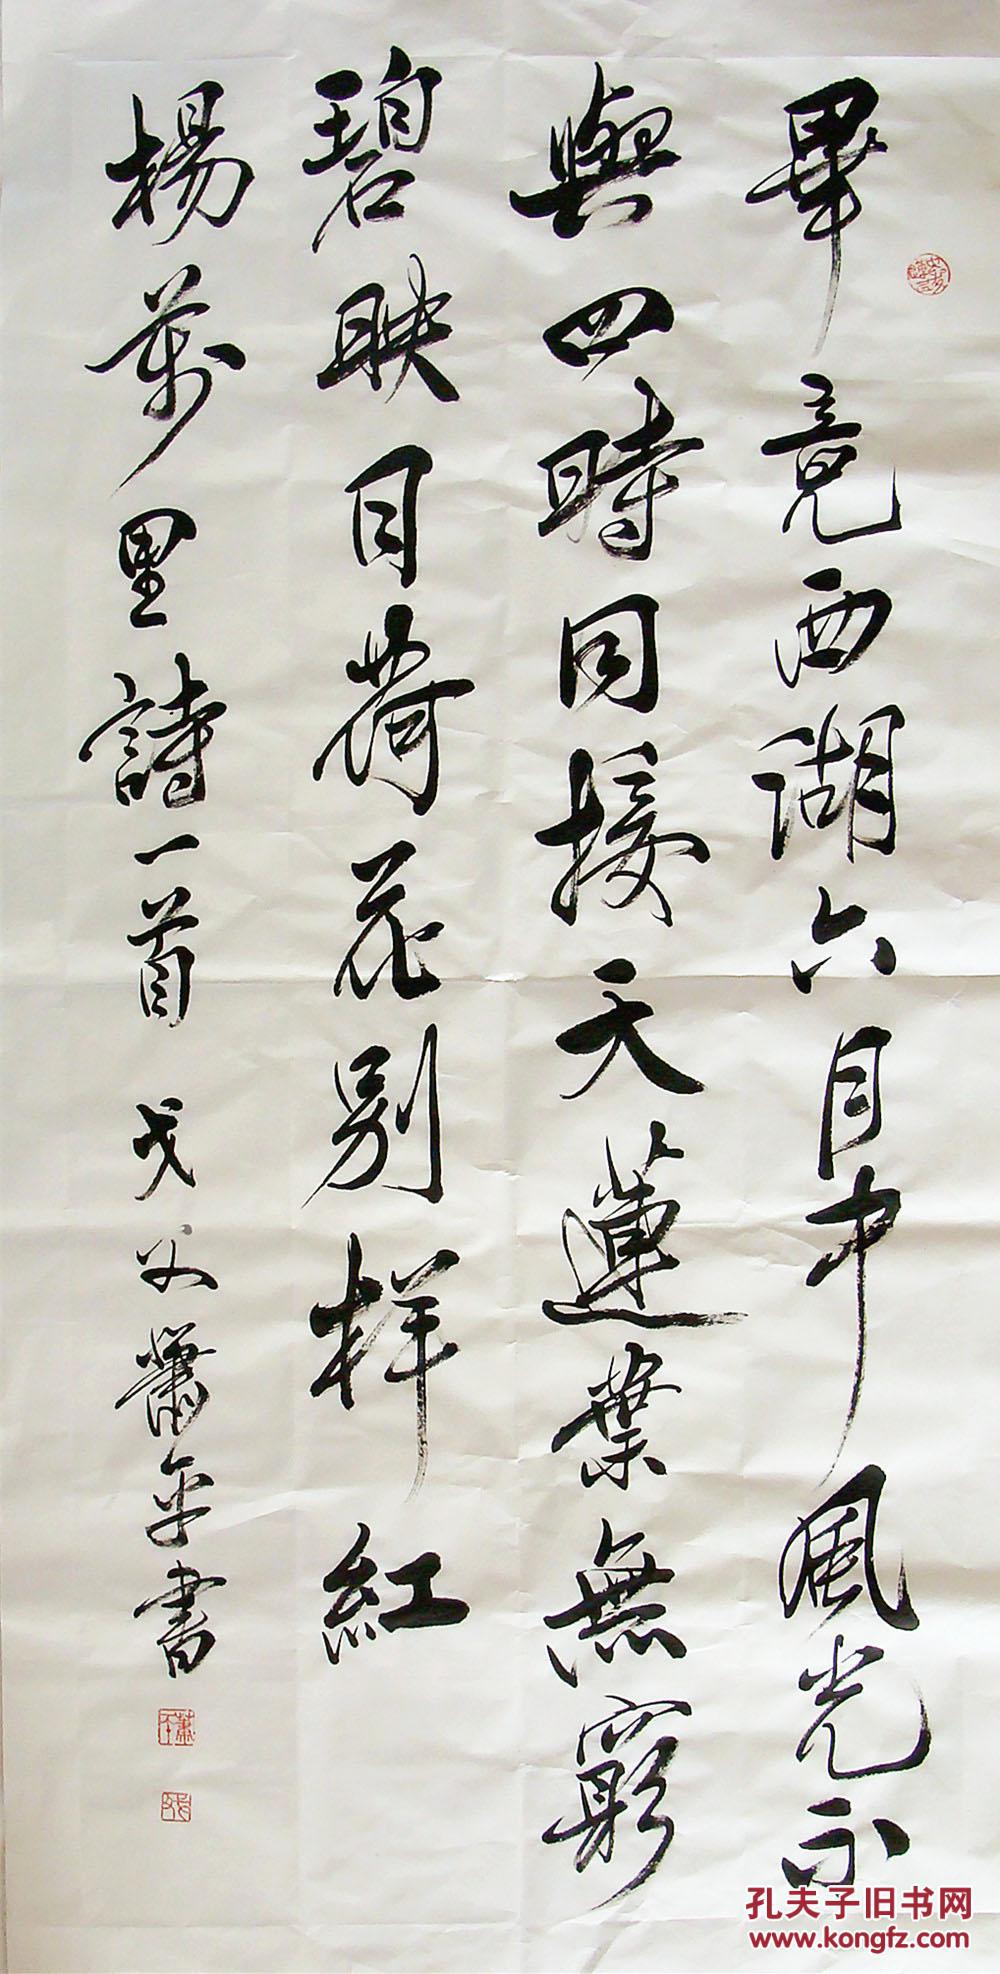 畢竟西湖六月中風光不
與四時同接天蓮葉無窮
碧映日荷花別樣紅
楊萬里詩一首 戈父蕭平書
孔夫子旧书网
www.kongfz.com